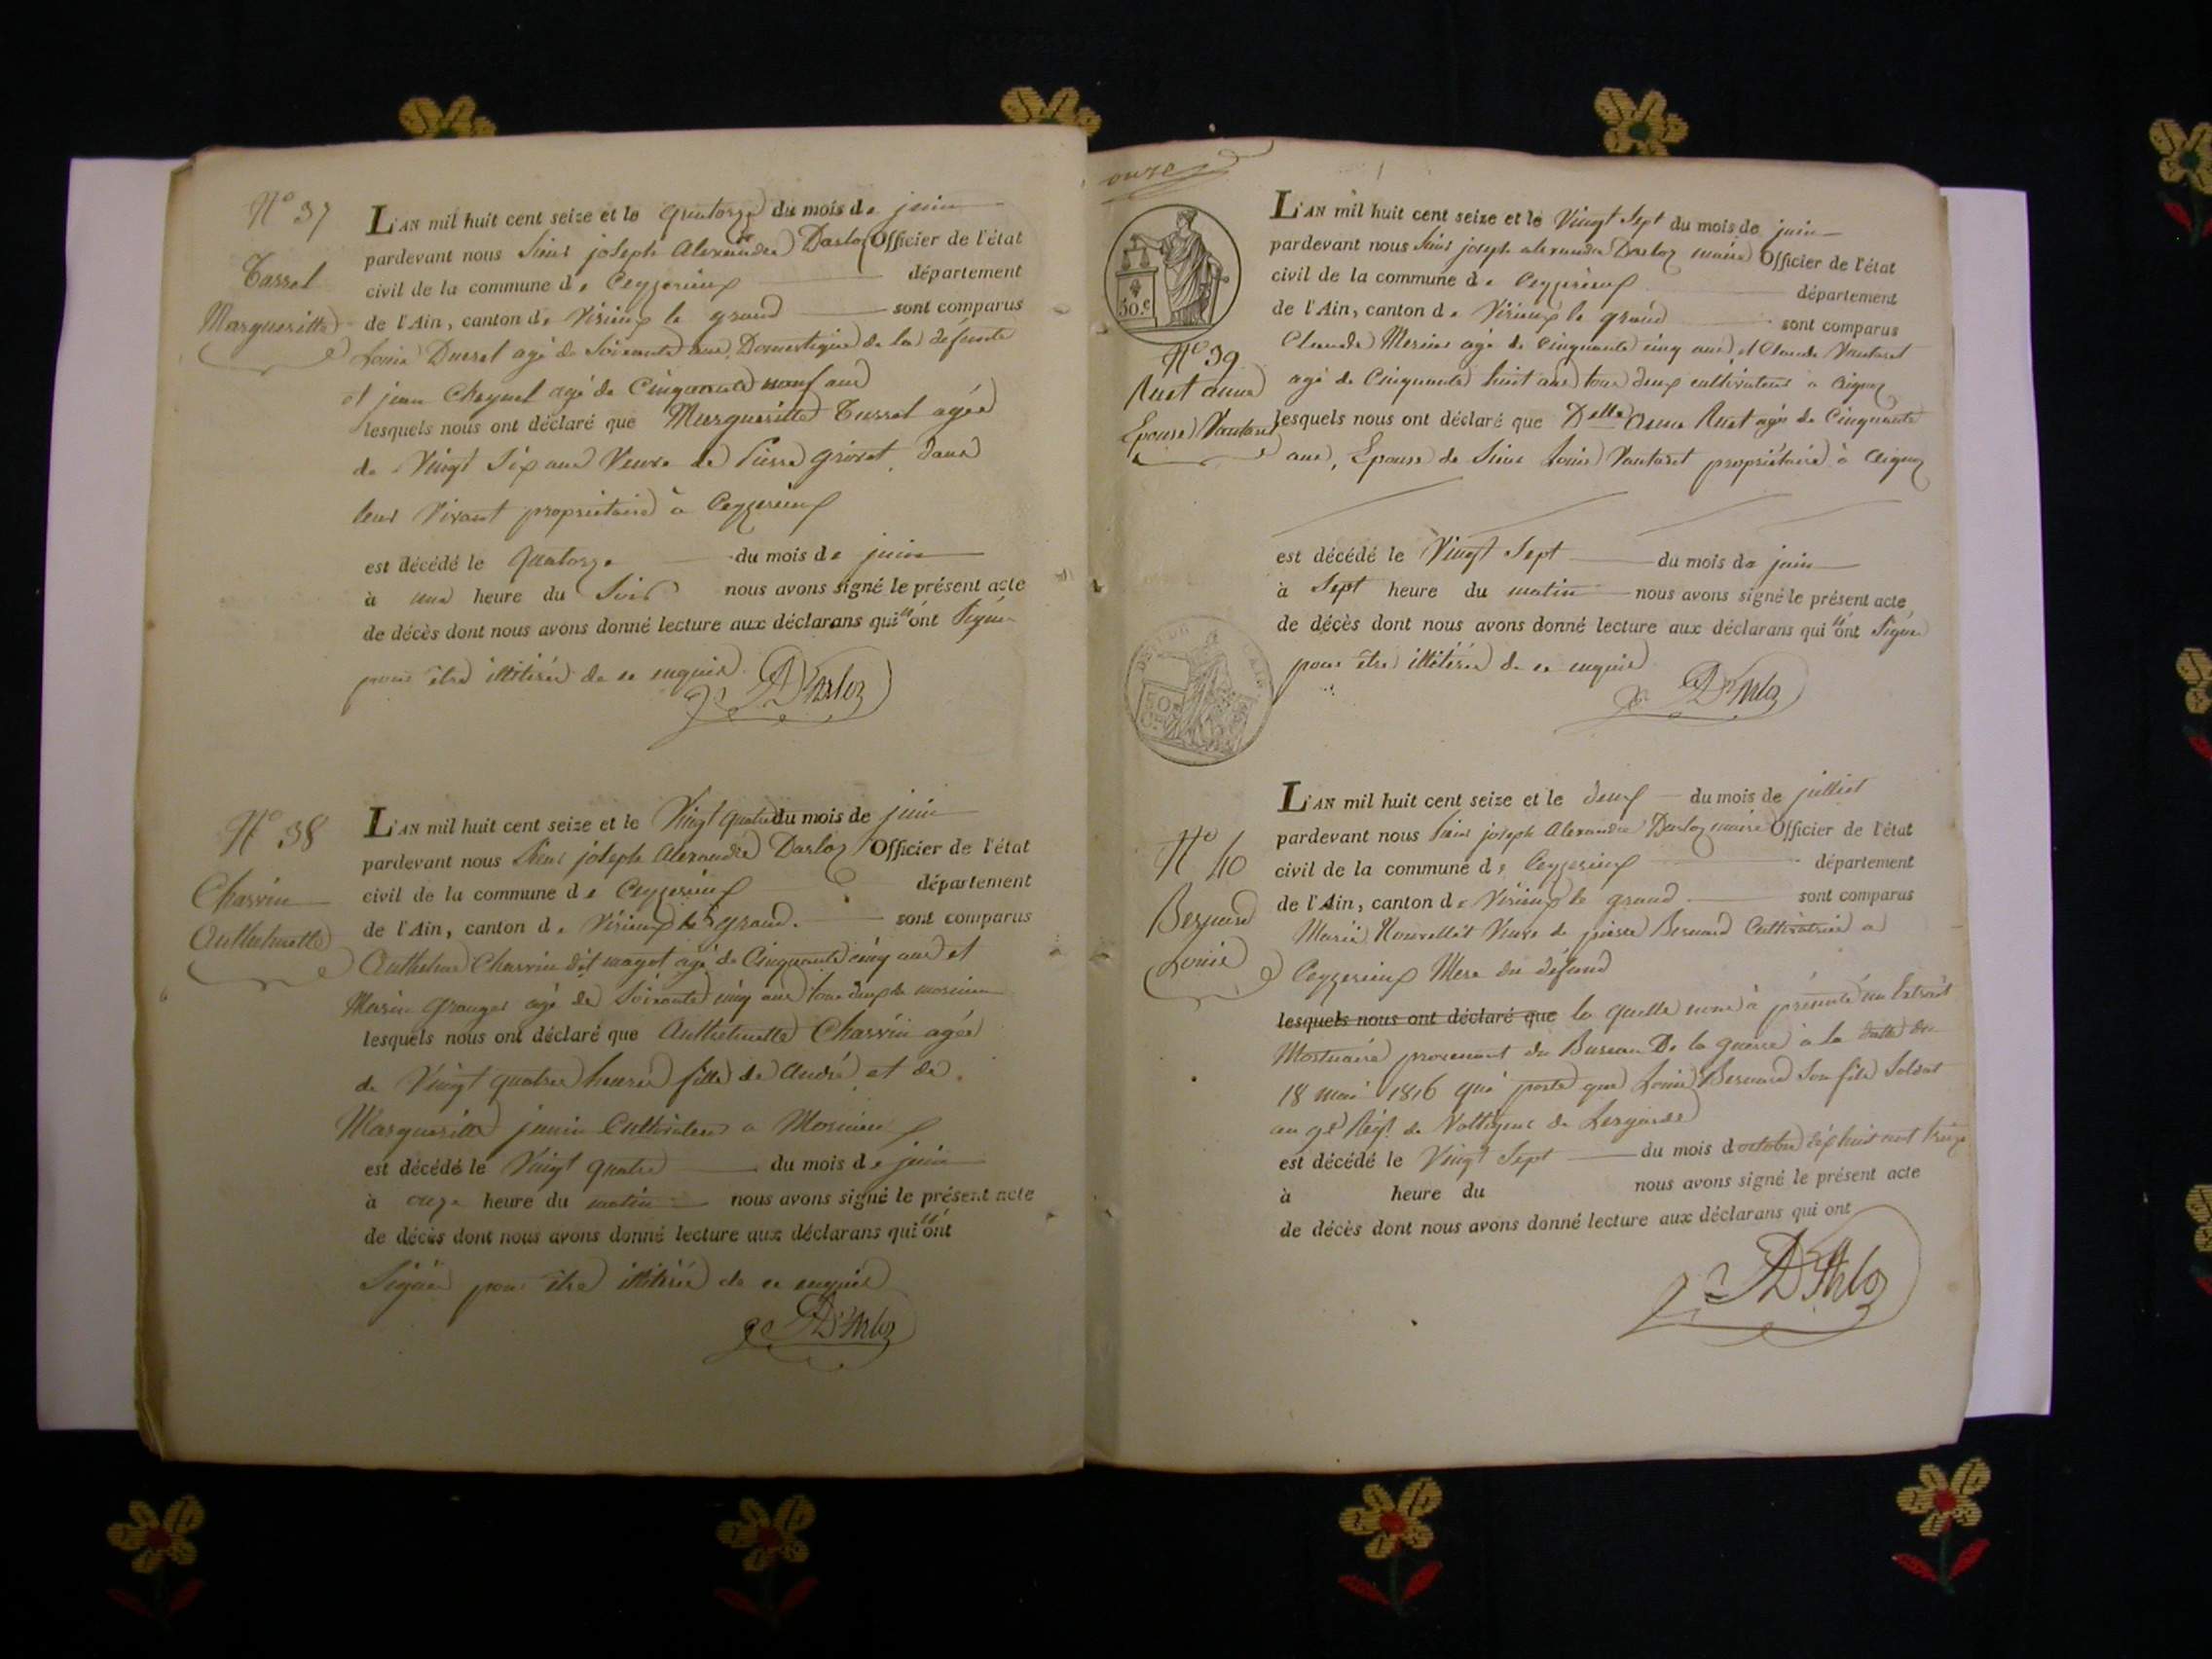 N° 37
Tassel
Margueritte
L'AN mil huit cent seize et le quatorze du mois de juin
pardevant nous Sieur joseph Alexandre Darloz Officier de l'état
civil de la commune de Ceyzerieux département
de l'Ain, canton de Virieux le grand sont comparus
Louis Ducret agé de Soixante ans, Domestique de la défunte
et jean Cheynel agé de Cinquante neuf ans
lesquels nous ont déclaré que Margueritte Tassel agée
de Vingt Six ans Veuve de Pierre grivet, dans
leur Vivant propriétaire à Ceyzerieux
est décédé le quatorze du mois de juin
à une heure du Soir nous avons signé le présent acte
de décès dont nous avons donné lecture aux déclarans qui n'ont Signé
pour être illitérés de ce enquis
Je A D'Arloz
N° 38
Charvin
Anthelmette
L'AN mil huit cent seize et le Vingt quatre du mois de juin
pardevant nous Sieur joseph Alexandre Darloz Officier de l'état
civil de la commune de Ceyzerieux département
de l'Ain, canton de Virieux le grand. sont comparus
Anthelme Charvin dit magot agé de Cinquante cinq ans et
Marin Granger agé de Soixante cinq ans tous deux de morinieu
lesquels nous ont déclaré que Anthelmette Charvin agée
de Vingt quatre heures fille de André et de
Margueritte janin Cultivateur a Morinieu
est décédé le Vingt quatre du mois de juin
à onze heure du matin nous avons signé le présent acte
de décès dont nous avons donné lecture aux déclarans qui n'ont
Signés pour être illitérés de ce enquis
Je A D'Arloz
onze
30.c
N° 39
Ruet anne
Epouse Vautaret
L'AN mil huit cent seize et le Vingt Sept du mois de juin
pardevant nous Sieur joseph alexandre Darloz maire Officier de l'état
civil de la commune de Ceyzerieux département
de l'Ain, canton de Virieux le grand sont comparus
Claude Mesins agé de Cinquante cinq ans et Claude Vautaret
agé de Cinquante huit ans tous deux cultivateurs a Aignoz
lesquels nous ont déclaré que Delle Anne Ruet agée de Cinquante
ans, Epouse de Sieur Louis Vautaret propriétaire à Aignoz
est décédé le Vingt Sept du mois de juin
à Sept heure du matin nous avons signé le présent acte
de décès dont nous avons donné lecture aux déclarans qui n'ont Signé
pour être illitérés de ce enquis
Je A D'Arloz
50
N° 40
Bernard
Louis
L'AN mil huit cent seize et le deux du mois de julliet
pardevant nous Sieur joseph Alexandre Darloz maire Officier de l'état
civil de la commune de Ceyzerieux département
de l'Ain, canton de Virieux le grand sont comparus
Marie Nouvellet Veuve de pierre Bernard Cultivatrice a
Ceyzerieux Mere du défund
lesquels nous ont déclaré que la quelle nous à présenté un Extrait
Mortuaire provenant du Bureau De la guerre à la datte du
18 mai 1816 qui porte que Louis Bernard Son fils Soldat
au 9e Régt de Voltigeur de Lagarde
est décédé le Vingt Sept du mois d octobre dix huit cent treize
à heure du nous avons signé le présent acte
de décès dont nous avons donné lecture aux déclarans qui ont
Je A D'Arloz